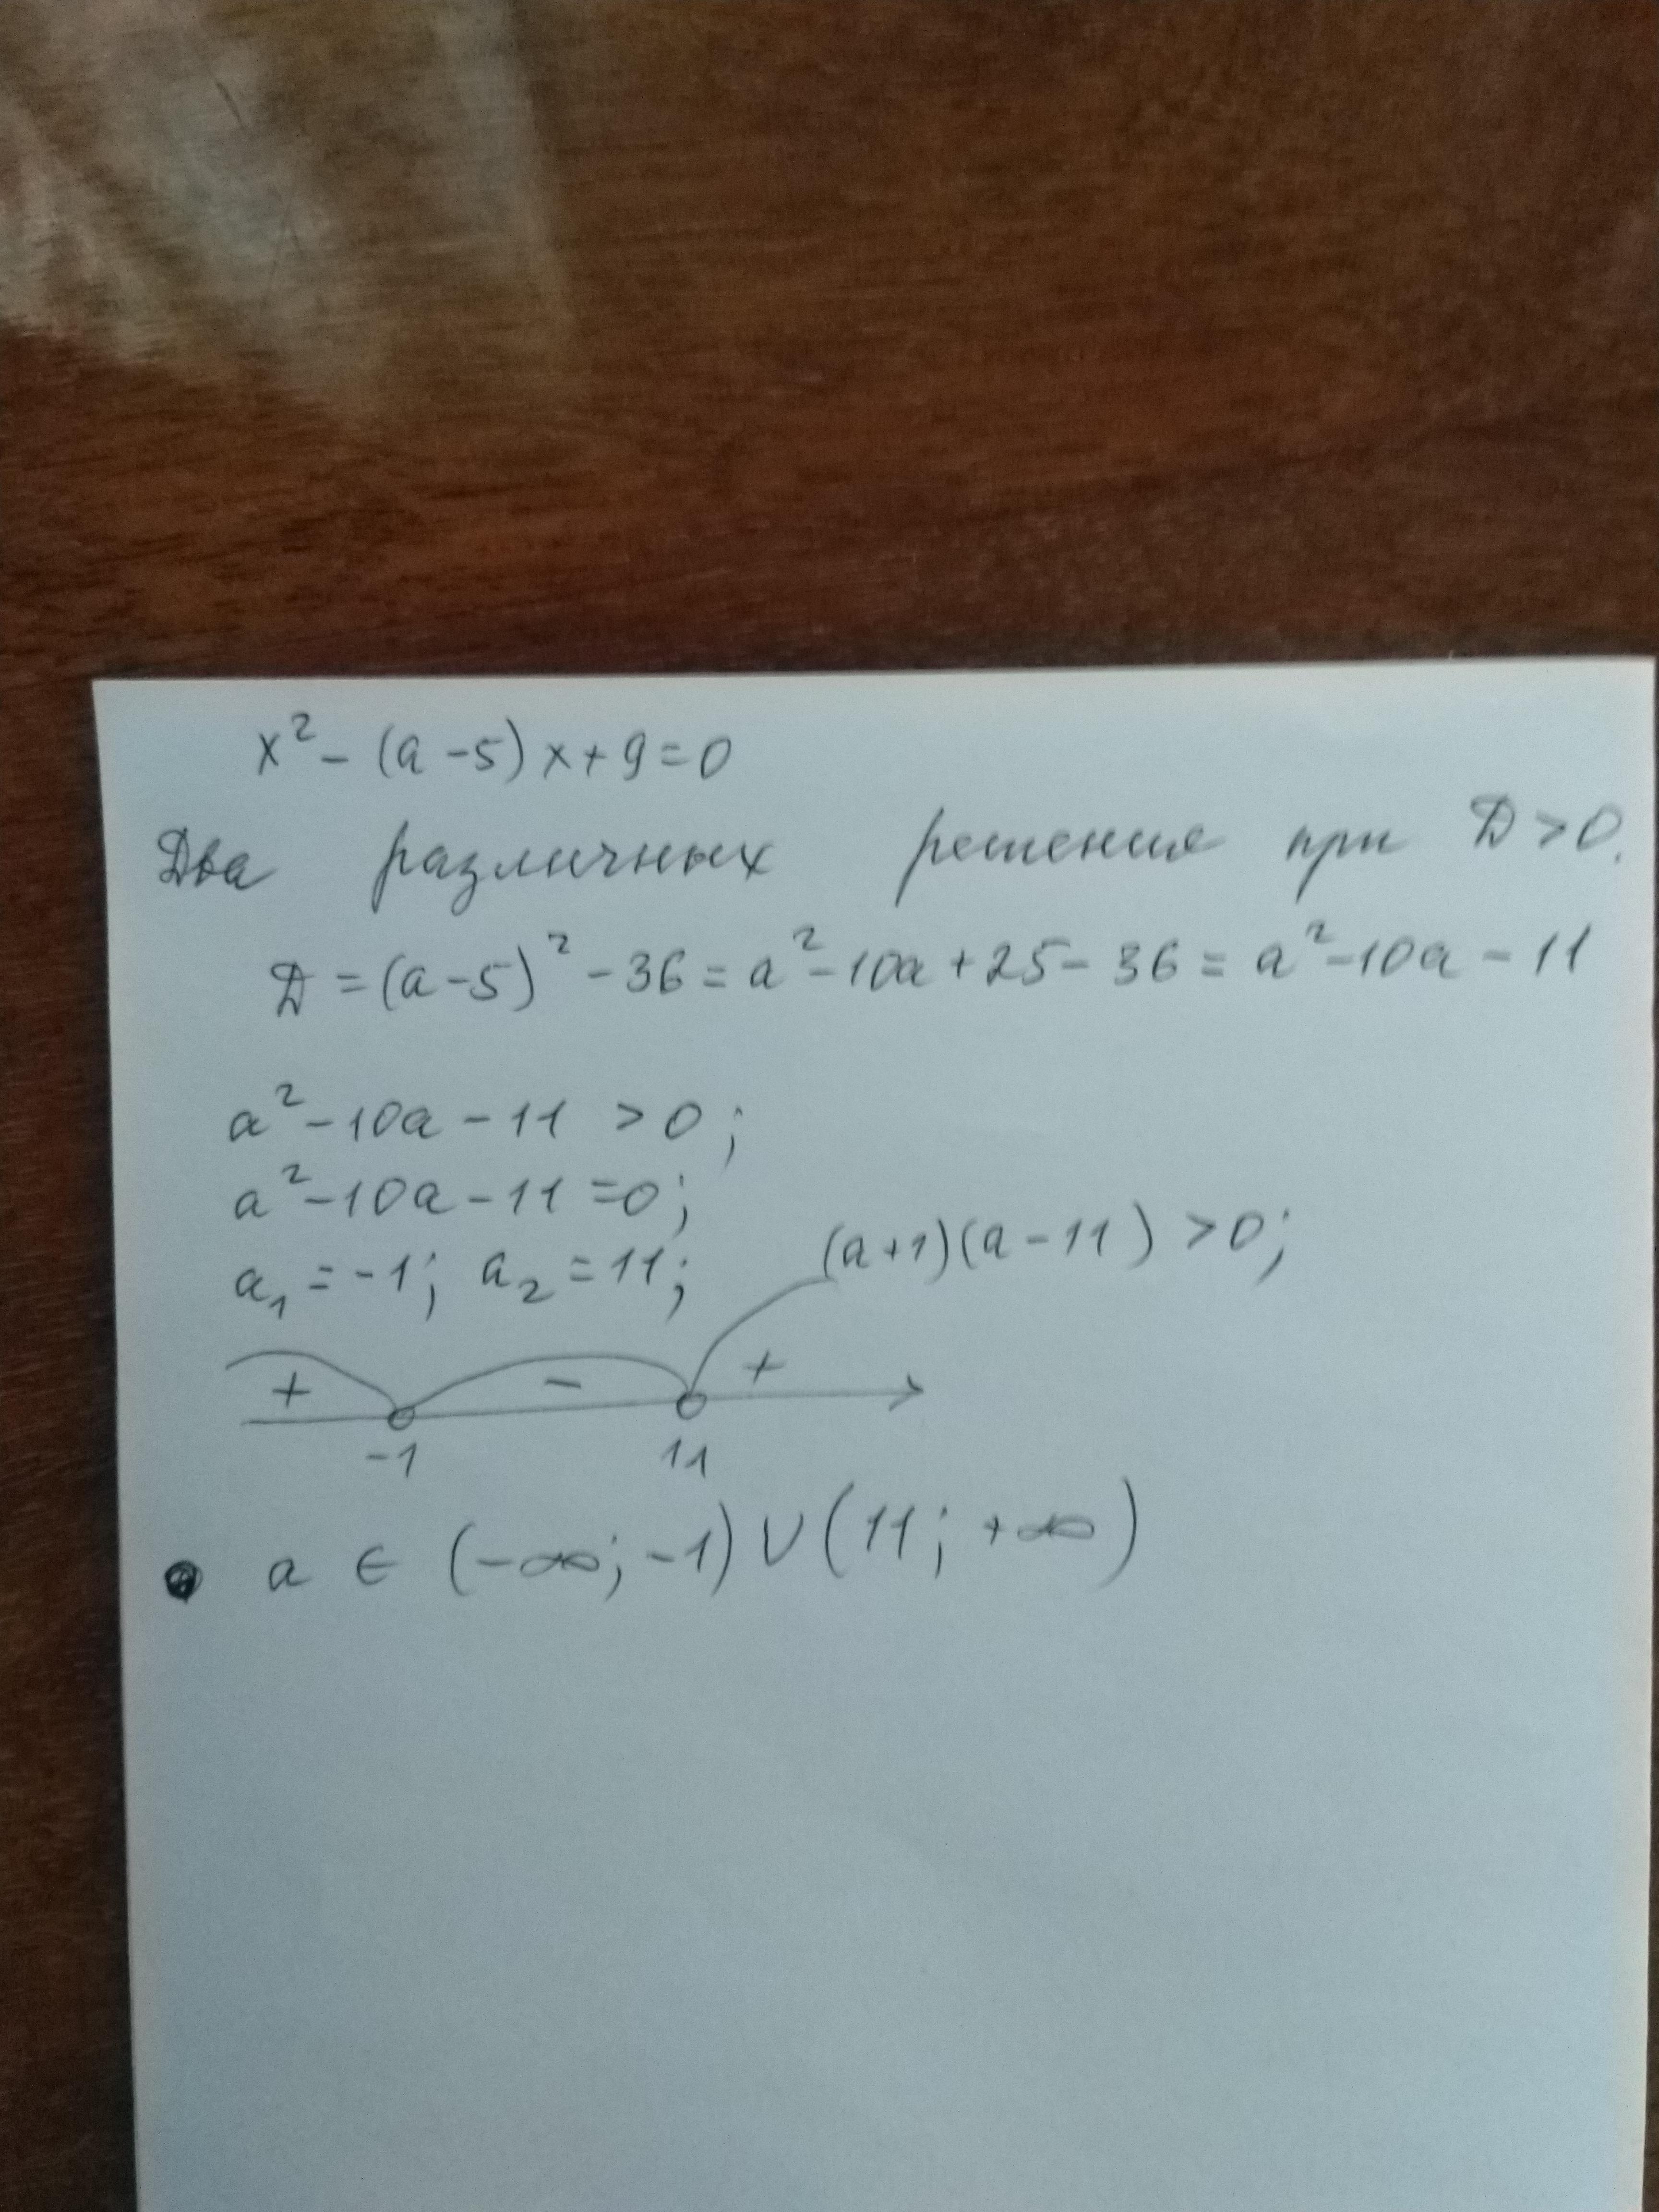 x² - (a - 5)x + 9 = 0
Два различных решения при D > 0.
D = (a - 5)² - 36 = a² - 10a + 25 - 36 = a² - 10a - 11
a² - 10a - 11 > 0;
a² - 10a - 11 = 0;
a₁ = -1; a₂ = 11;
(a + 1)(a - 11) > 0;
+ - +
-1 11
a ∈ (-∞; -1) ∪ (11; +∞)